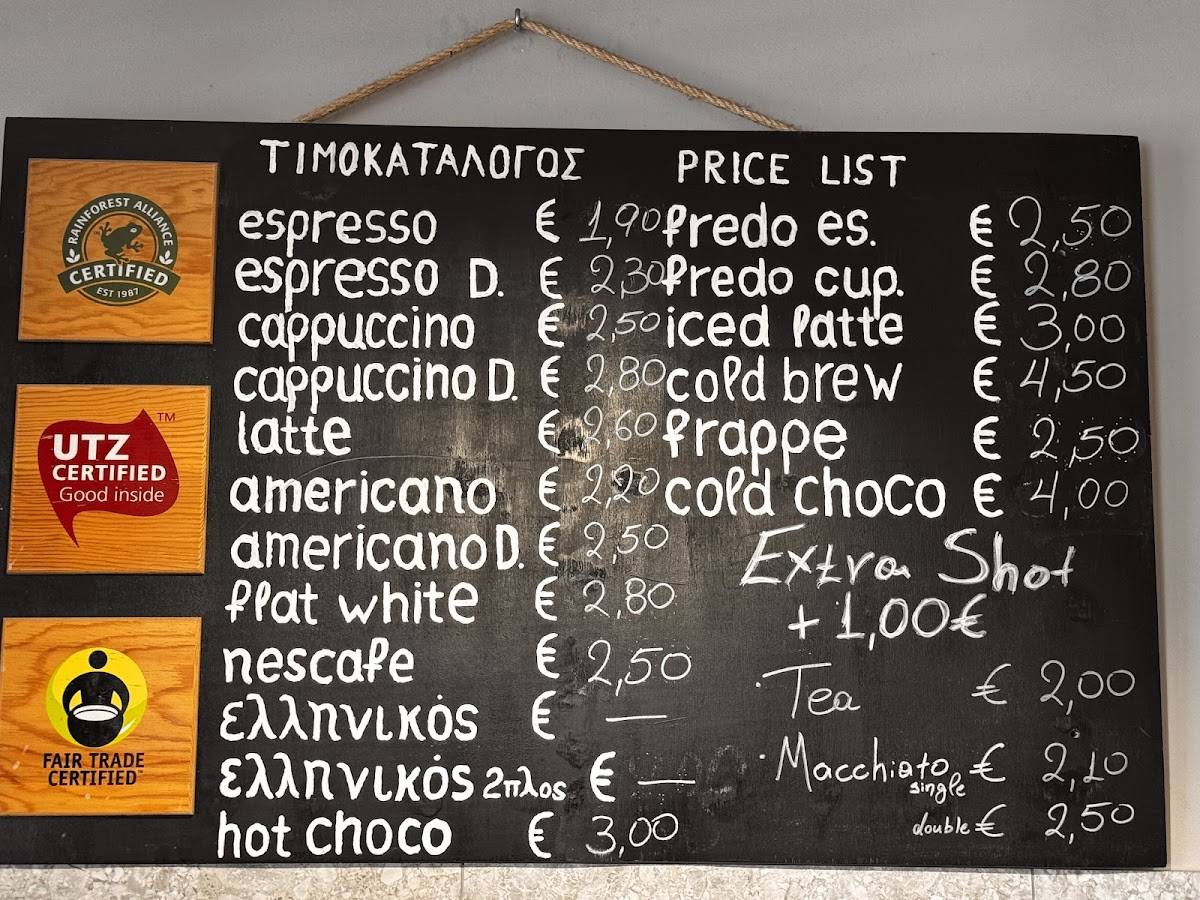 ΤΙΜΟΚΑΤΑΛΟΓΟΣ
espresso € 1,90
espresso D. € 2,30
cappuccino € 2,50
cappuccino D. € 2,80
latte € 2,60
americano € 2,20
americano D. € 2,50
flat white € 2,80
nescafe € 2,50
ελληνικός € —
ελληνικός 2πλος € —
hot choco € 3,00
PRICE LIST
fredo es. € 2,50
fredo cup. € 2,80
iced latte € 3,00
cold brew € 4,50
frappe € 2,50
cold choco € 4,00
Extra Shot
+ 1,00€
· Tea € 2,00
· Macchiato single € 2,10
double € 2,50
RAINFOREST ALLIANCE
CERTIFIED
EST 1987
UTZ ™
CERTIFIED
Good inside
FAIR TRADE
CERTIFIED™